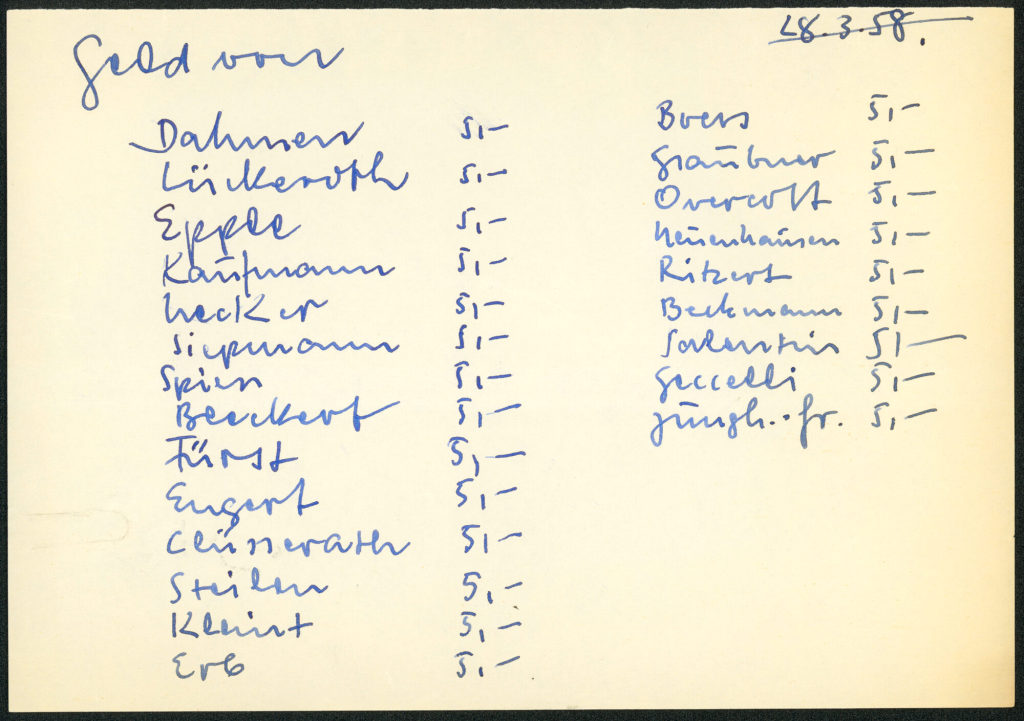 28.3.58.
Geld von
Dahmen 5,–
Lückeroth 5,–
Epple 5,–
Kaufmann 5,–
Hecker 5,–
Siepmann 5,–
Spien 5,–
Bleckert 5,–
Fürst 5,–
Engert 5,–
Clüsserath 5,–
Steilen 5,–
Kleint 5,–
Erb 5,–
Boers 5,–
Graubner 5,–
Overcott 5,–
Neuenhausen 5,–
Ritzert 5,–
Beckmann 5,–
Salentin 5,–
Geccelli 5,–
Jüngh.. fr. 5,–